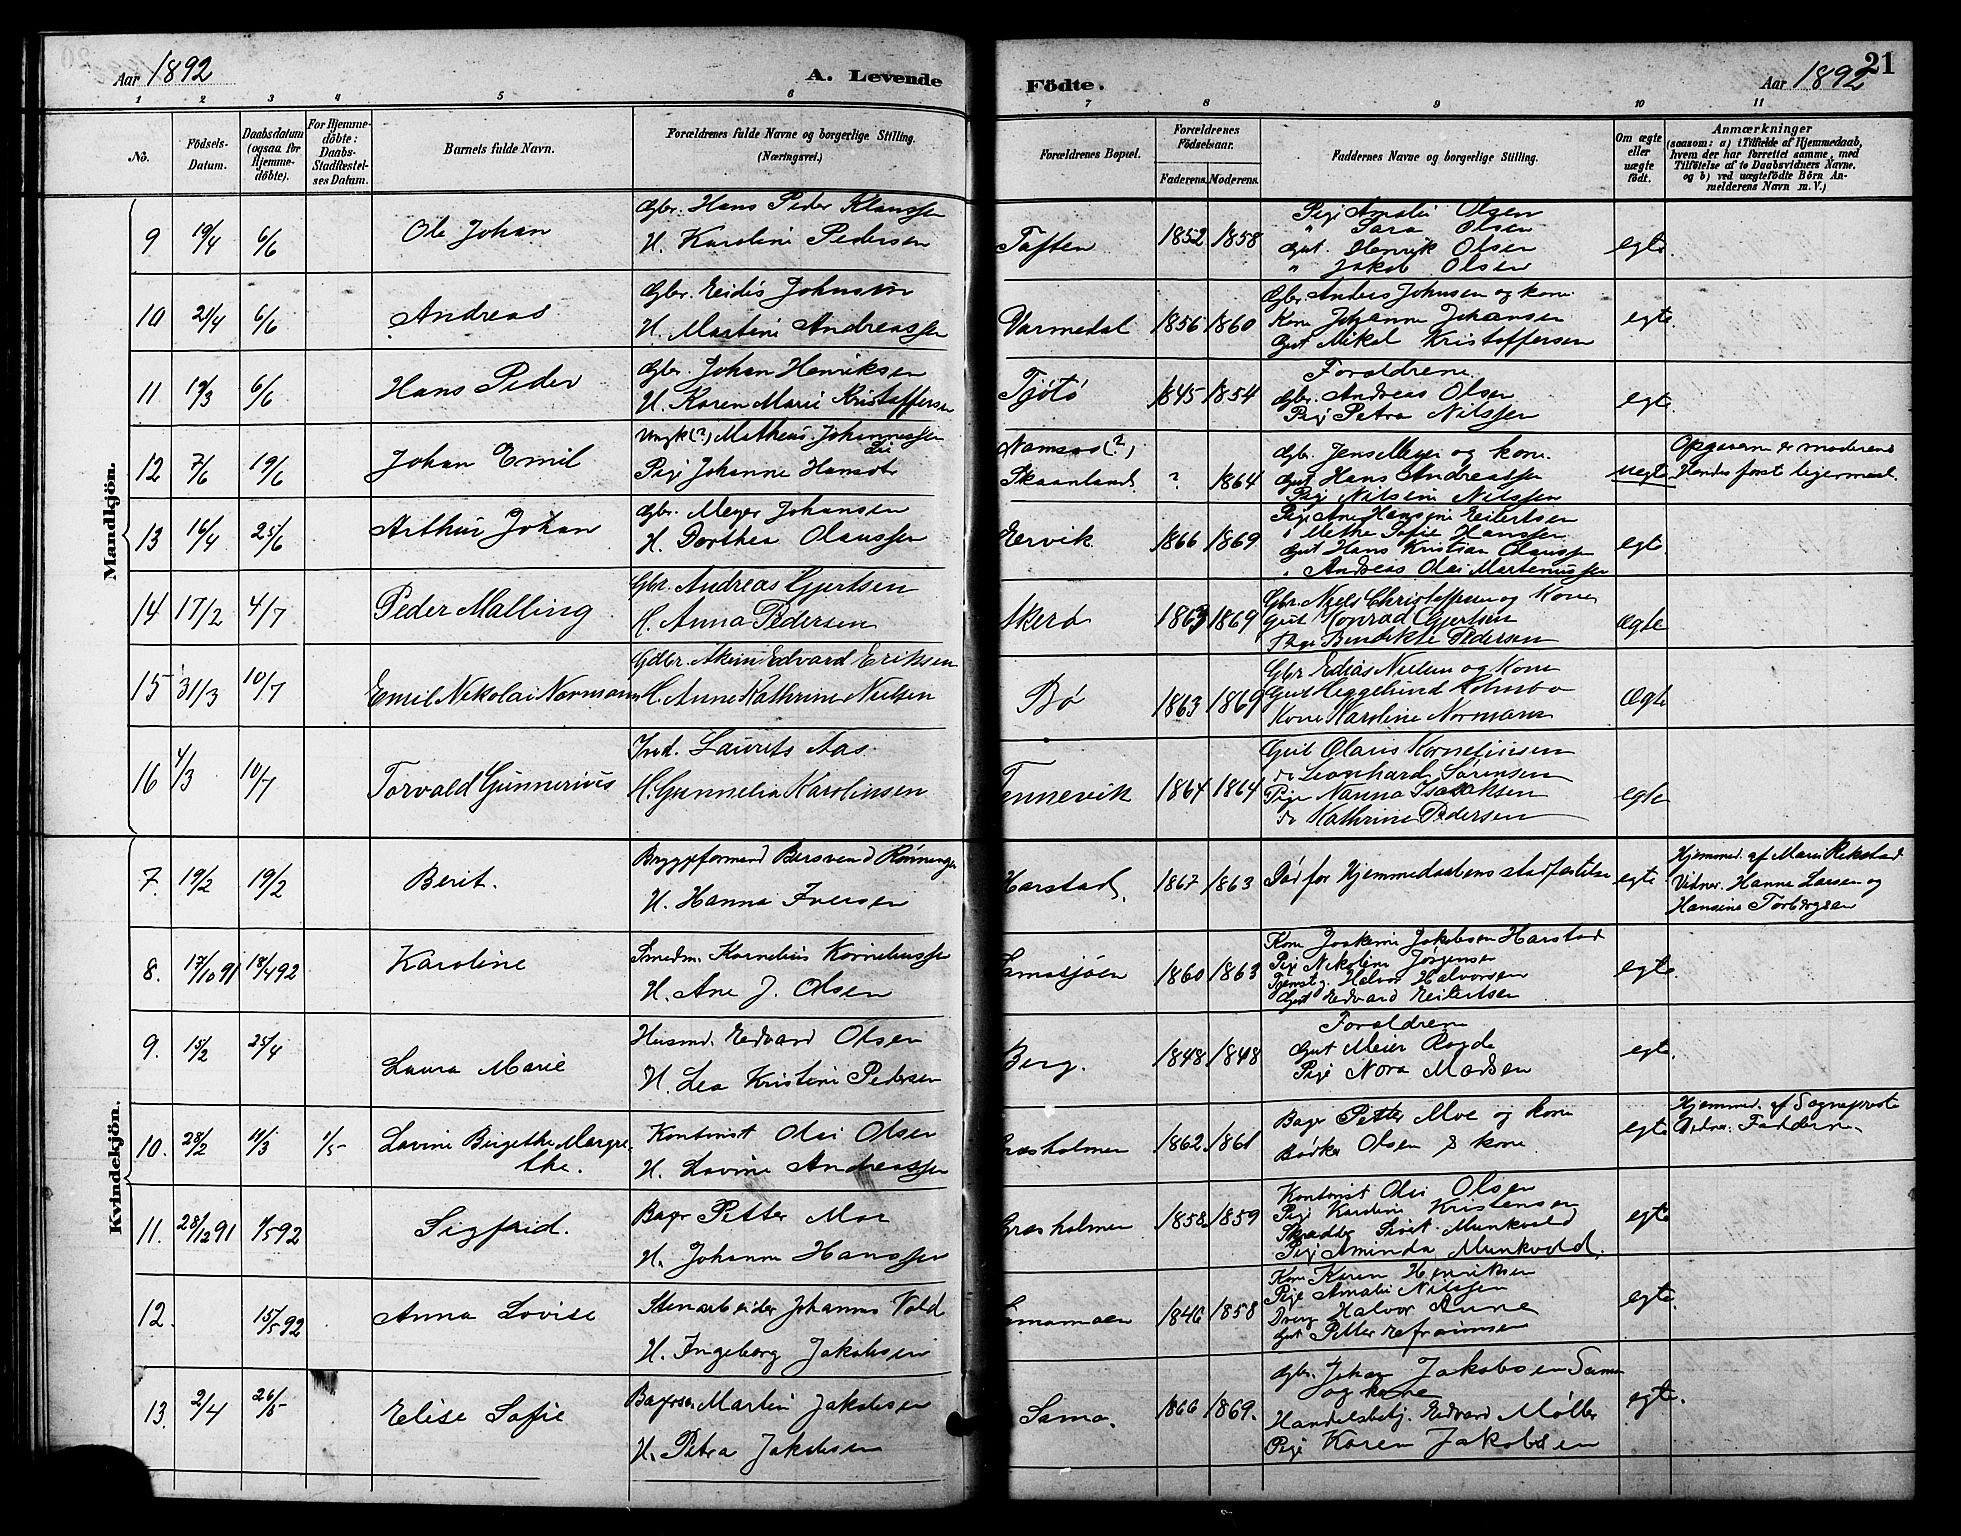 Aar 1892
A. Levende
Födte.
Aar 1892
21
1 2 3 4 5 6 7 8 9 10 11
No.
Födsels-Datum.
Daabsdatum (ogsaa for Hjemme-döbte).
For Hjemme-döbte: Daabs-Stadfæstel-ses Datum.
Barnets fulde Navn.
Forældrenes fulde Navne og borgerlige Stilling. (Næringsvei.)
Forældrenes Bopæl.
Forældrenes Födselsaar.
Faderens. Moderens.
Faddernes Navne og borgerlige Stilling.
Om ægte eller uægte födt.
Anmærkninger
(saasom: a) i Tilfælde af Hjemmedaab,
hvem der har forrettet samme, med
Tilföielse af to Daabsvidners Navne,
og b) ved uægtefödte Börn An-
melderens Navn m. V.)
Mandkjön.
9 19/4 6/6 Ole Johan
Gbr. Hans Peder Klaussen
H. Karolini Pedersen
Toften 1852 1858
Pige Amalie Olsen
" Sara Olsen
Gut Henrik Olsen
" Jakob Olsen
egte.
10 21/4 6/6 Andreas
Gbr. Eidis Johnsen
H. Martini Andreassen
Varmedal 1856 1860
Gbr. Anders Johnsen og kone
Kone Johanne Johansen
Gut Mikal Kristoffersen
egte.
11 19/3 6/6 Hans Peder
Gbr. Johan Henriksen
H. Karen Marie Kristoffersen
Tjøtø 1845 1854
Forældrene
Gbr. Andreas Olsen
Pige Petra Nilssen
egte.
12 7/6 19/6 Johan Emil
Ungk (?) Matheus Johannessen
Pige Johanne Hansdtr
Namsos (?)
Skaanland. ? 1864
Gbr. Jens Meyer og kone.
Gut Hans Andreassen
Pige Nilsine Nilssen
uegte
Opgaven er moderens
Hendes først leiermaal.
13 16/4 25/6 Arthur Johan
Gbr. Meyer Johansen
H. Dorthea Olaussen
Ervik 1866 1869
Pige Ane Hansine Eilertsen
" Methe Sofie Hanssen
Gut Hans Kristian Olaussen
" Andreas Olai Martinussen
egte
14 17/2 4/7 Peder Malling
Gbr. Andreas Gjertsen
H. Anna Pedersen
Akerø 1863 1869
Gbr. Niels Christoffersen og Kone
Gut Konrad Gjertsen
Pige Bendikte Pedersen
Ægte
15 31/3 10/7 Emil Nikolai Normann
Gdbr. Akim Edvard Eriksen
H. Anne Kathrine Nielsen
Bø 1863 1869
Gbr. Edias Nielsen og Kone
Gut Heggelund Holmbo
Kone Karoline Normann
Ægte
16 4/3 10/7 Torvald Gunnerius
Ind. Laurits Aas.
H. Gunnelia Karolinsen
Tennevik 1864 1864
Gut Olaus Kornelinsen
do Leonhard Sørensen
Pige Nanna Isaaksen
do Kathrine Pedersen
egte
Kvindekjön.
7. 19/2 19/2 Berit.
Bryggeformand Bersvend Rønningen
H. Hanna Iversen
Harstad. 1867 1863
Død før Hjemmedaabens stadfæstelse
egte
Hjemmed. af Marie Rekstad
Vidner. Hanne Larsen og
Hansine Torbergsen
8. 17/10 91 18/4 92 Karoline
Smedm. Kornelius Korneliussen
H. Ane J. Olsen
Samasjøen 1860 1863
Kone Joakime Jakobsen Harstad
Pige Nikoline Jørgensen
Tjenstg. Halvor Halvorsen
Gut Edvard Eilertsen
egte.
9. 15/2 25/4 Laura Marie
Husmd. Edvard Olsen
H. Lea Kristine Pedersen
Berg. 1848 1848
Forældrene
Gut Meier Rogde
Pige Nora Madsen
egte.
10. 28/2 11/3 1/5 Lovine Birgethe Margre-
the.
Kontorist Olai Olsen
H. Lovine Andreassen
Græsholmen 1862. 1861
Bager Petter Moe og kone
Bødker Olsen & kone.
egte
Hjemmed. af Sogneprest
Vidne. Faddern.
11. 28/12 91 1/5 92 Sigfrid.
Bager Petter Moe
H. Johanne Hanssen
Græsholmen 1858 1859
Kontorist Olai Olsen
Pige Karoline Kristensen
Skrædder Sivert Munkvold
Pige Aminda Munkvold.
egte
12. 15/5 92 Anna Lovise
Stenarbeider Johannes Vold
H. Ingeborg Jakobsen
Samamoen 1846 1858
Kone Karen Henriksen
Pige Amalie Nilssen
Dreng Halvor Aune
Gut Petter Efraimsen
egte
13. 2/4 26/5 Elise Sofie
Bagersv. Martin Jakobsen
H. Petra Jakobsen
Sama. 1866 1869.
Gbr. Johan Jakobsen Sama
og kone
Handelsbetj. Edvard Møller
Pige Karen Jakobsen
egte.